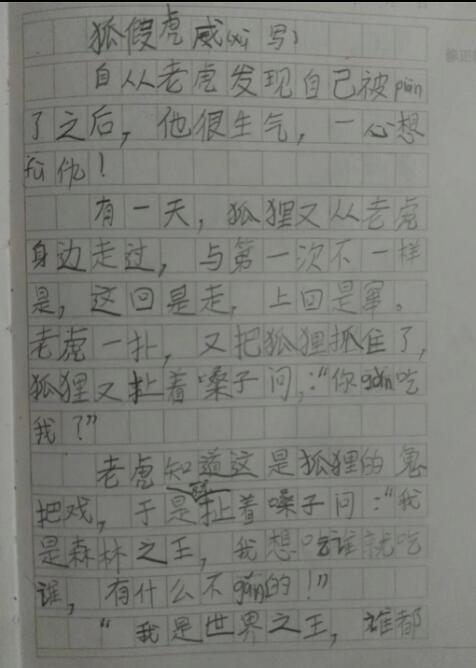 狐假虎威(xù写)
自从老虎发现自己被piàn
了之后，他很生气，一心想
fù仇！
有一天，狐狸又从老虎
身边走过，与第一次不一样
是，这回是走，上回是窜。
老虎一扑，又把狐狸抓住了，
狐狸又扯着嗓子问，：“你gǎn吃
我？”
老虎知道这是狐狸的鬼
把戏，于是扯着嗓子问：“我
是森林之王，我想吃谁就吃
谁，有什么不gǎn的！”
“我是世界之王，谁都